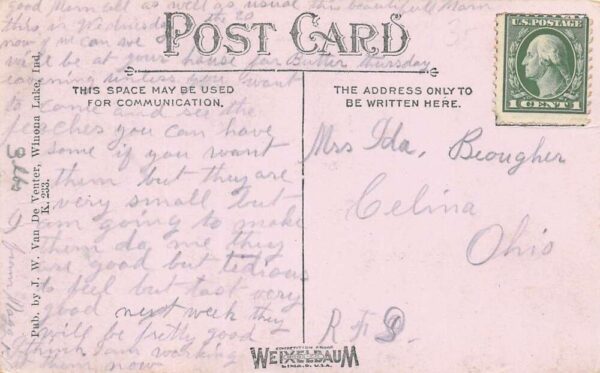 good Morn all as well as usual this beautiful Morn
this is Wednesday the 20
now if we can we
will be at your house for Butter thursday
evening unless you want
to come and see the
peaches you can have
some if you want
them but they are
very small but
I am going to make
them do me they
are good but tedious
to peel but tast very
good next week they
will be pretty good
think I am working
at them now
from
POST CARD
THIS SPACE MAY BE USED
FOR COMMUNICATION.
THE ADDRESS ONLY TO
BE WRITTEN HERE.
U.S. POSTAGE
1 CENT 1
Mrs Ida, Beougher
Celina
Ohio
R F D.
Pub. by J. W. Van De Venter, Winona Lake, Ind.
K. 233.
WEIXELBAUM
LIMA, O. U.S.A.